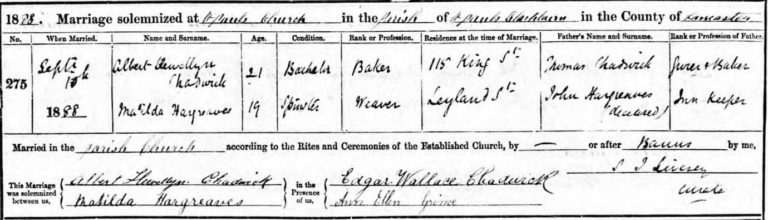 1888. Marriage solemnized at St Pauls Church in the Parish of St Pauls Blackburn in the County of Lancaster
No. When Married. Name and Surname. Age. Condition. Rank or Profession. Residence at the time of Marriage. Father's Name and Surname. Rank or Profession of Father.
275 Septr 1888 Albert Llewellyn Chadwick 21 Bachelor Baker 115 King St Thomas Chadwick & Baker
Matilda Hargreaves 19 Spinster Weaver Leyland St John Hargreaves (deceased) Inn Keeper
Married in the Parish Church according to the Rites and Ceremonies of the Established Church, by — or after Banns by me,
This Marriage was solemnized between us, Albert Llewellyn Chadwick in the Presence of us, Edgar Wallace Chadwick
Matilda Hargreaves Ann Ellen
Curate